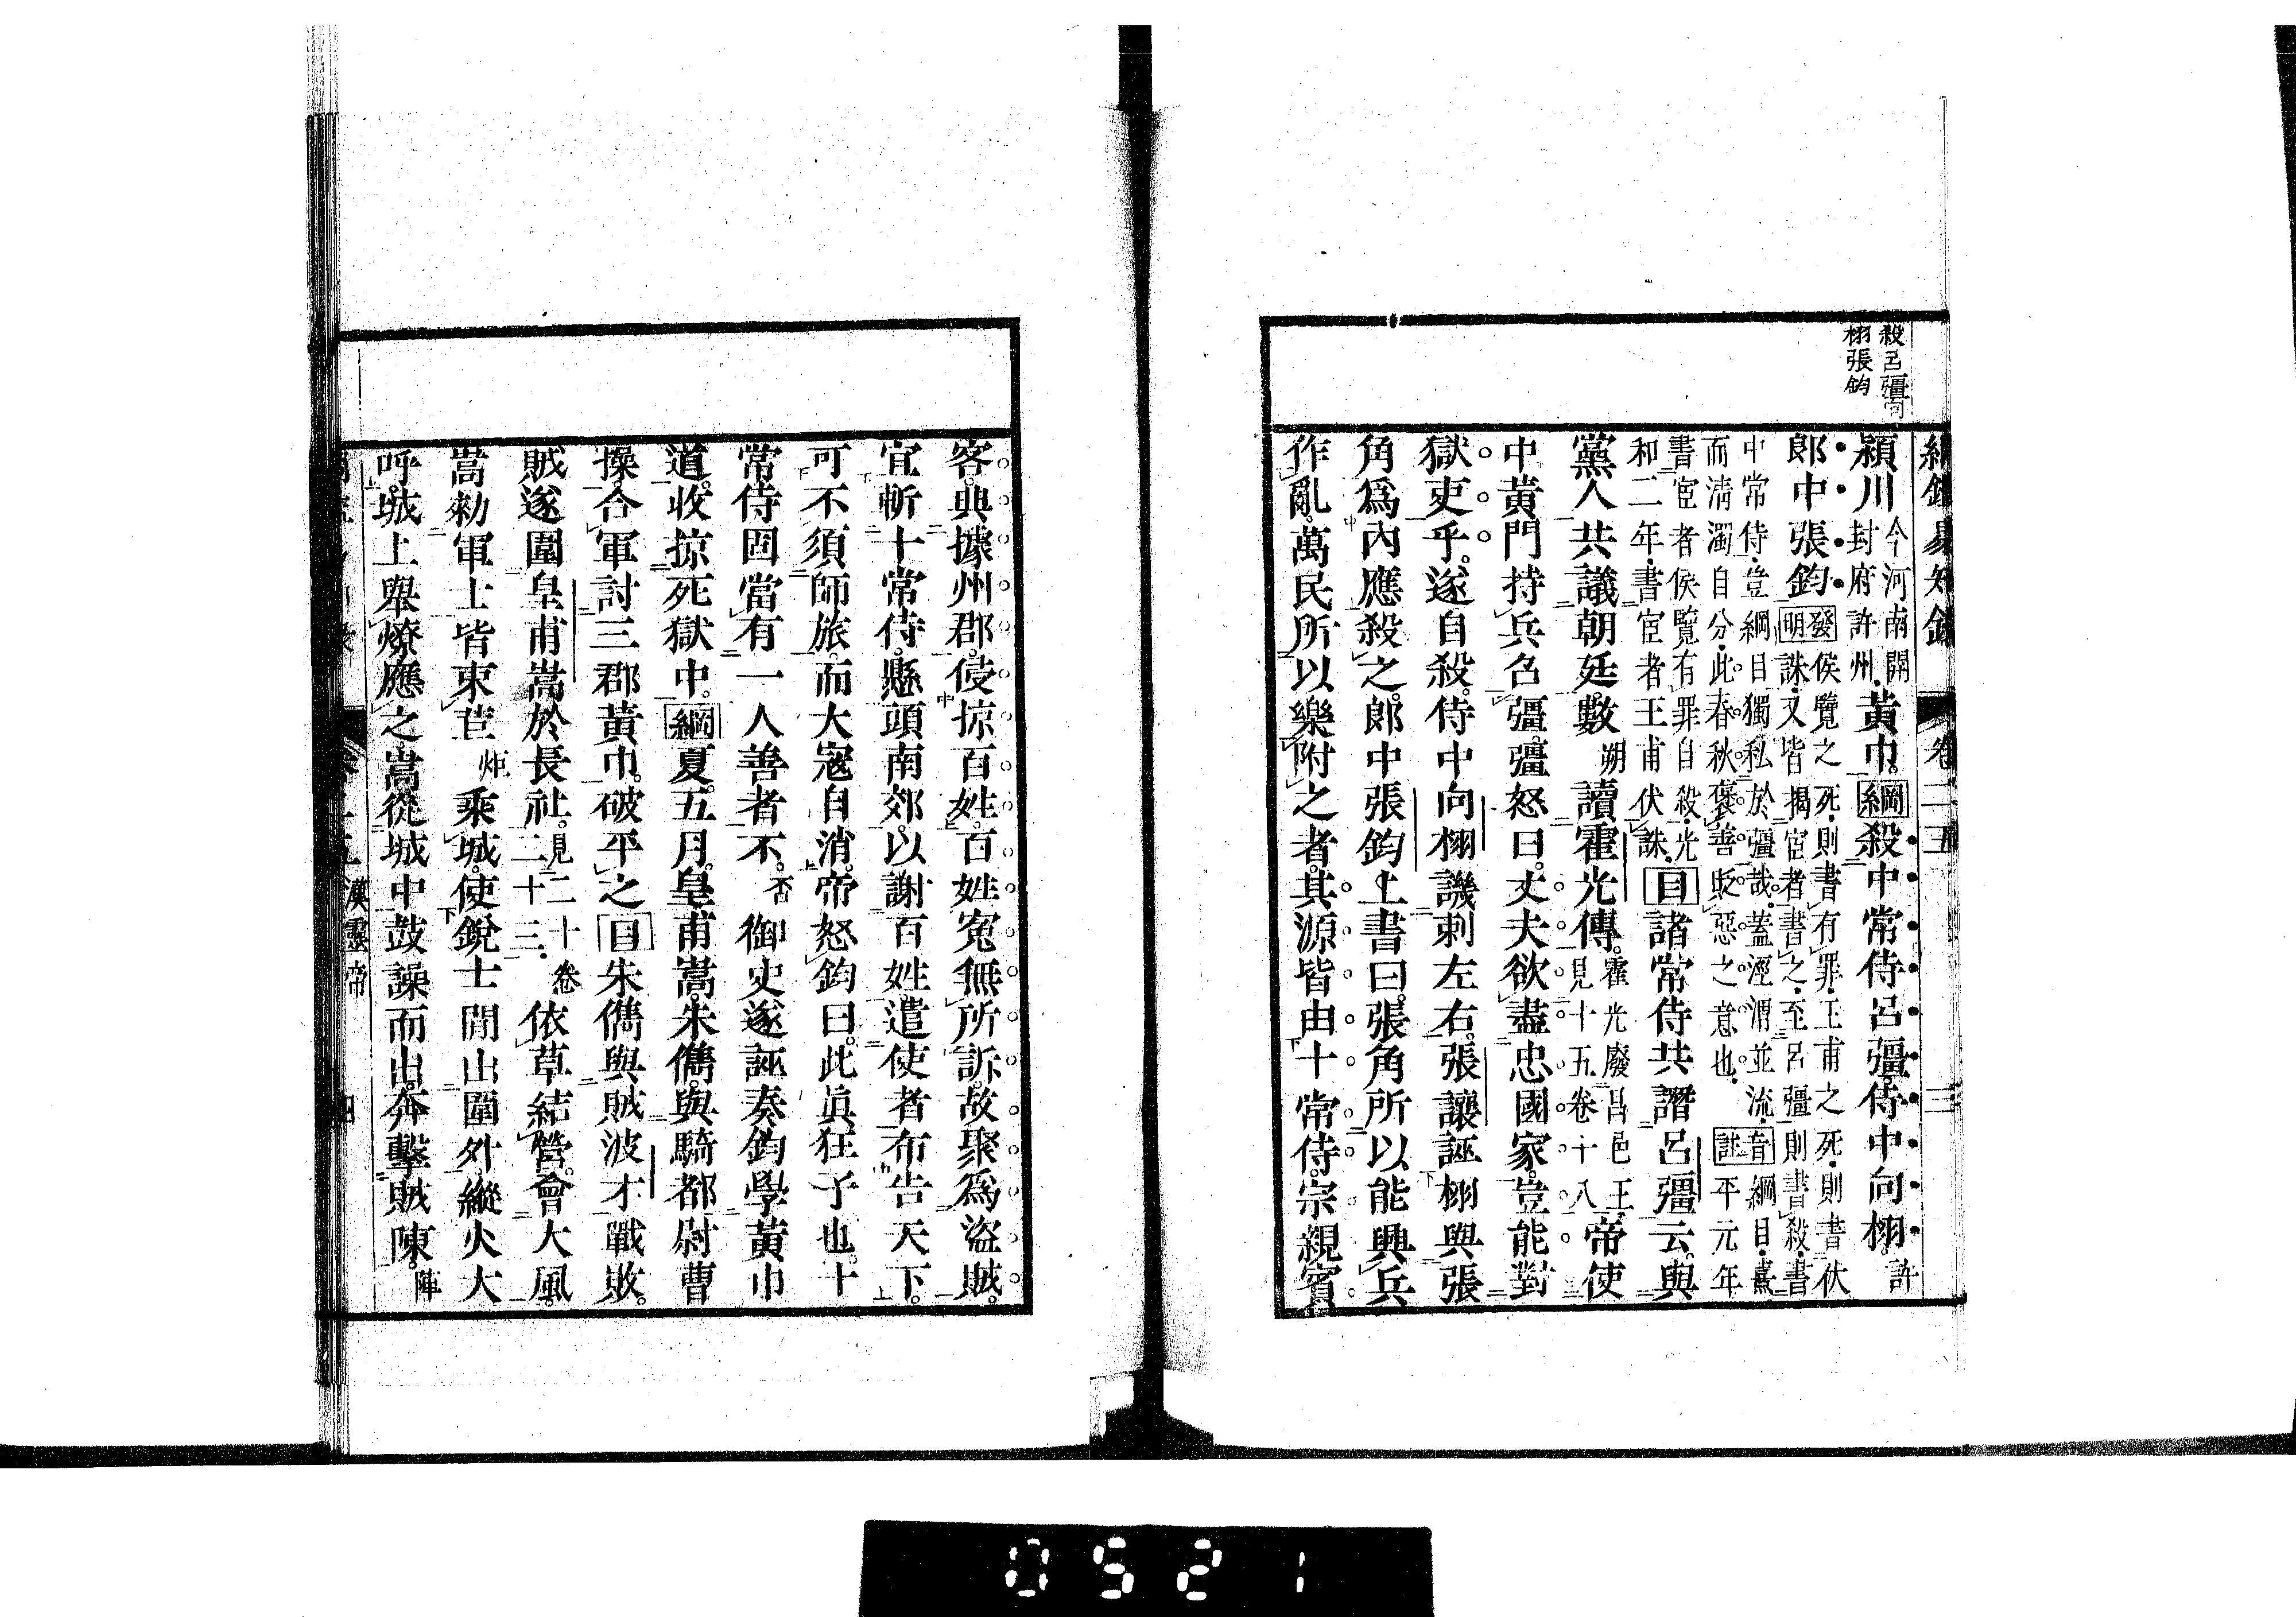 綱鑑易知錄 卷二五 三
殺呂彊向
栩張鈞
潁川今河南開封府許州黃巾。綱殺中常侍呂彊。侍中向栩。許
郎中張鈞發明侯覽之死、則書有罪、王甫之死、則書伏誅、又皆揭宦者書之、至呂彊則書殺、書
中常侍、豈綱目獨私於彊哉、蓋涇渭並流、音綱目、熹
而淸濁自分、此春秋褒善貶惡之意也、註平元年
書宦者侯覽有罪自殺、光
和二年、書宦者王甫伏誅、目諸常侍共譖呂彊云。與
黨人共議朝廷。數朔讀霍光傳。霍光廢昌邑王、見十五卷十八帝使
中黃門持兵召彊。彊怒曰。丈夫欲盡忠國家。豈能對
獄吏乎。遂自殺。侍中向栩譏刺左右。張讓誣栩與張
角爲內應殺之。郞中張鈞上書曰。張角所以能興兵
作亂。萬民所以樂附之者。其源皆由十常侍。宗親賓
客。典據州郡。侵掠百姓。百姓寃無所訴。故聚爲盜賊。
宜斬十常侍。懸頭南郊。以謝百姓。遣使者布告天下。
可不須師旅。而大寇自消。帝怒鈞曰。此眞狂子也。十
常侍固當有一人善者不。否御史遂誣奏鈞學黃巾
道。收掠死獄中。綱夏。五月。皇甫嵩。朱儁。與騎都尉曹
操。合軍討三郡黃巾。破平之目朱儁與賊波才戰敗。
賊遂圍皇甫嵩於長社。見二十卷二十三、依草結營。會大風。
嵩勑軍士皆束苣炬乘城。使銳士閒出圍外。縱火大
呼。城上舉燎應之。嵩從城中鼓譟而出。奔擊賊陳。陣
漢靈帝 四
0521